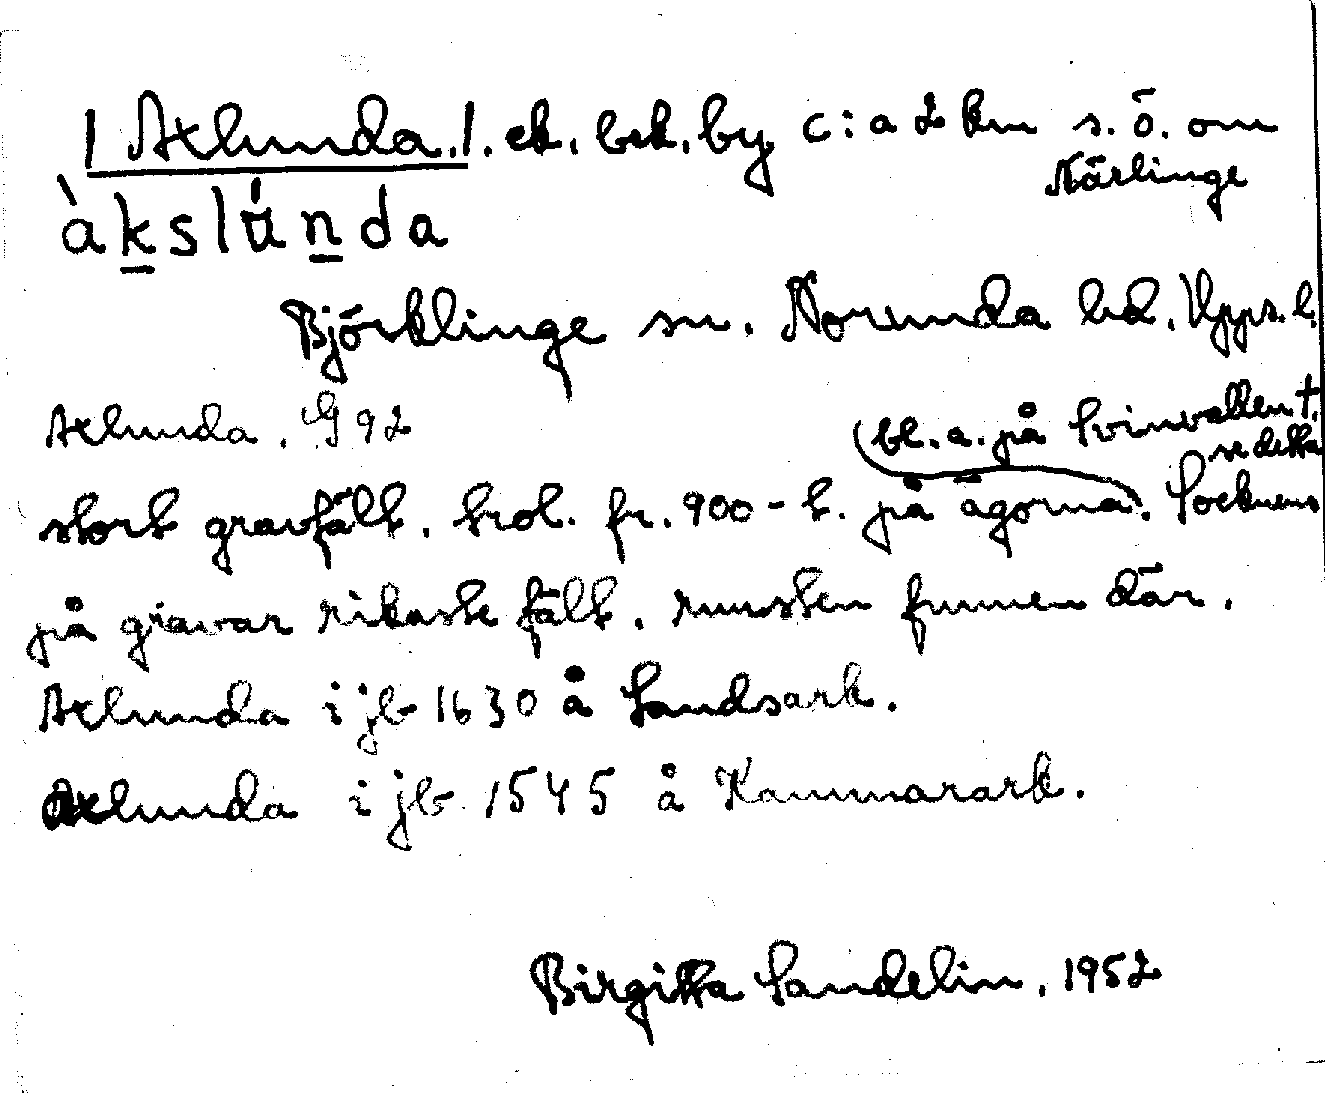 | Axlunda. |. ek. brk. by c:a 2 km s. ö. om
Närlinge
àkslúnda
Björklinge sn. Norunda hd. Upps. l.
Axlunda. G 92
bl. a. på Svinvallen †.
se detta
stort gravfält. trol. fr. 900-t. på ägorna. Socknens
på gravar rikaste fält. runsten funnen där.
Axlunda i jb 1630 å Landsark.
Axlunda i jb 1545 å Kammarark.
Birgitta Sandelin. 1952